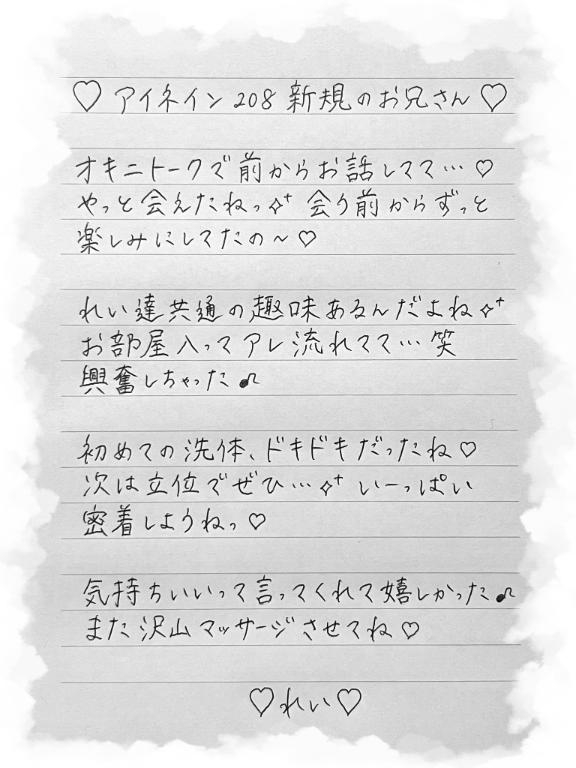 ♡ アイネイン 208 新規のお兄さん ♡
オキニトークで前からお話してて…♡
やっと会えたねっ✧⁺ 会う前からずっと
楽しみにしてたの〜♡
れい達共通の趣味あるんだよね✧⁺
お部屋入ってアレ流れてて…笑
興奮しちゃった♪
初めての洗体、ドキドキだったね♡
次は立位でぜひ…✧⁺ いーっぱい
密着しようねっ♡
気持ちいいって言ってくれて嬉しかった♪
また沢山マッサージさせてね♡
♡れい♡